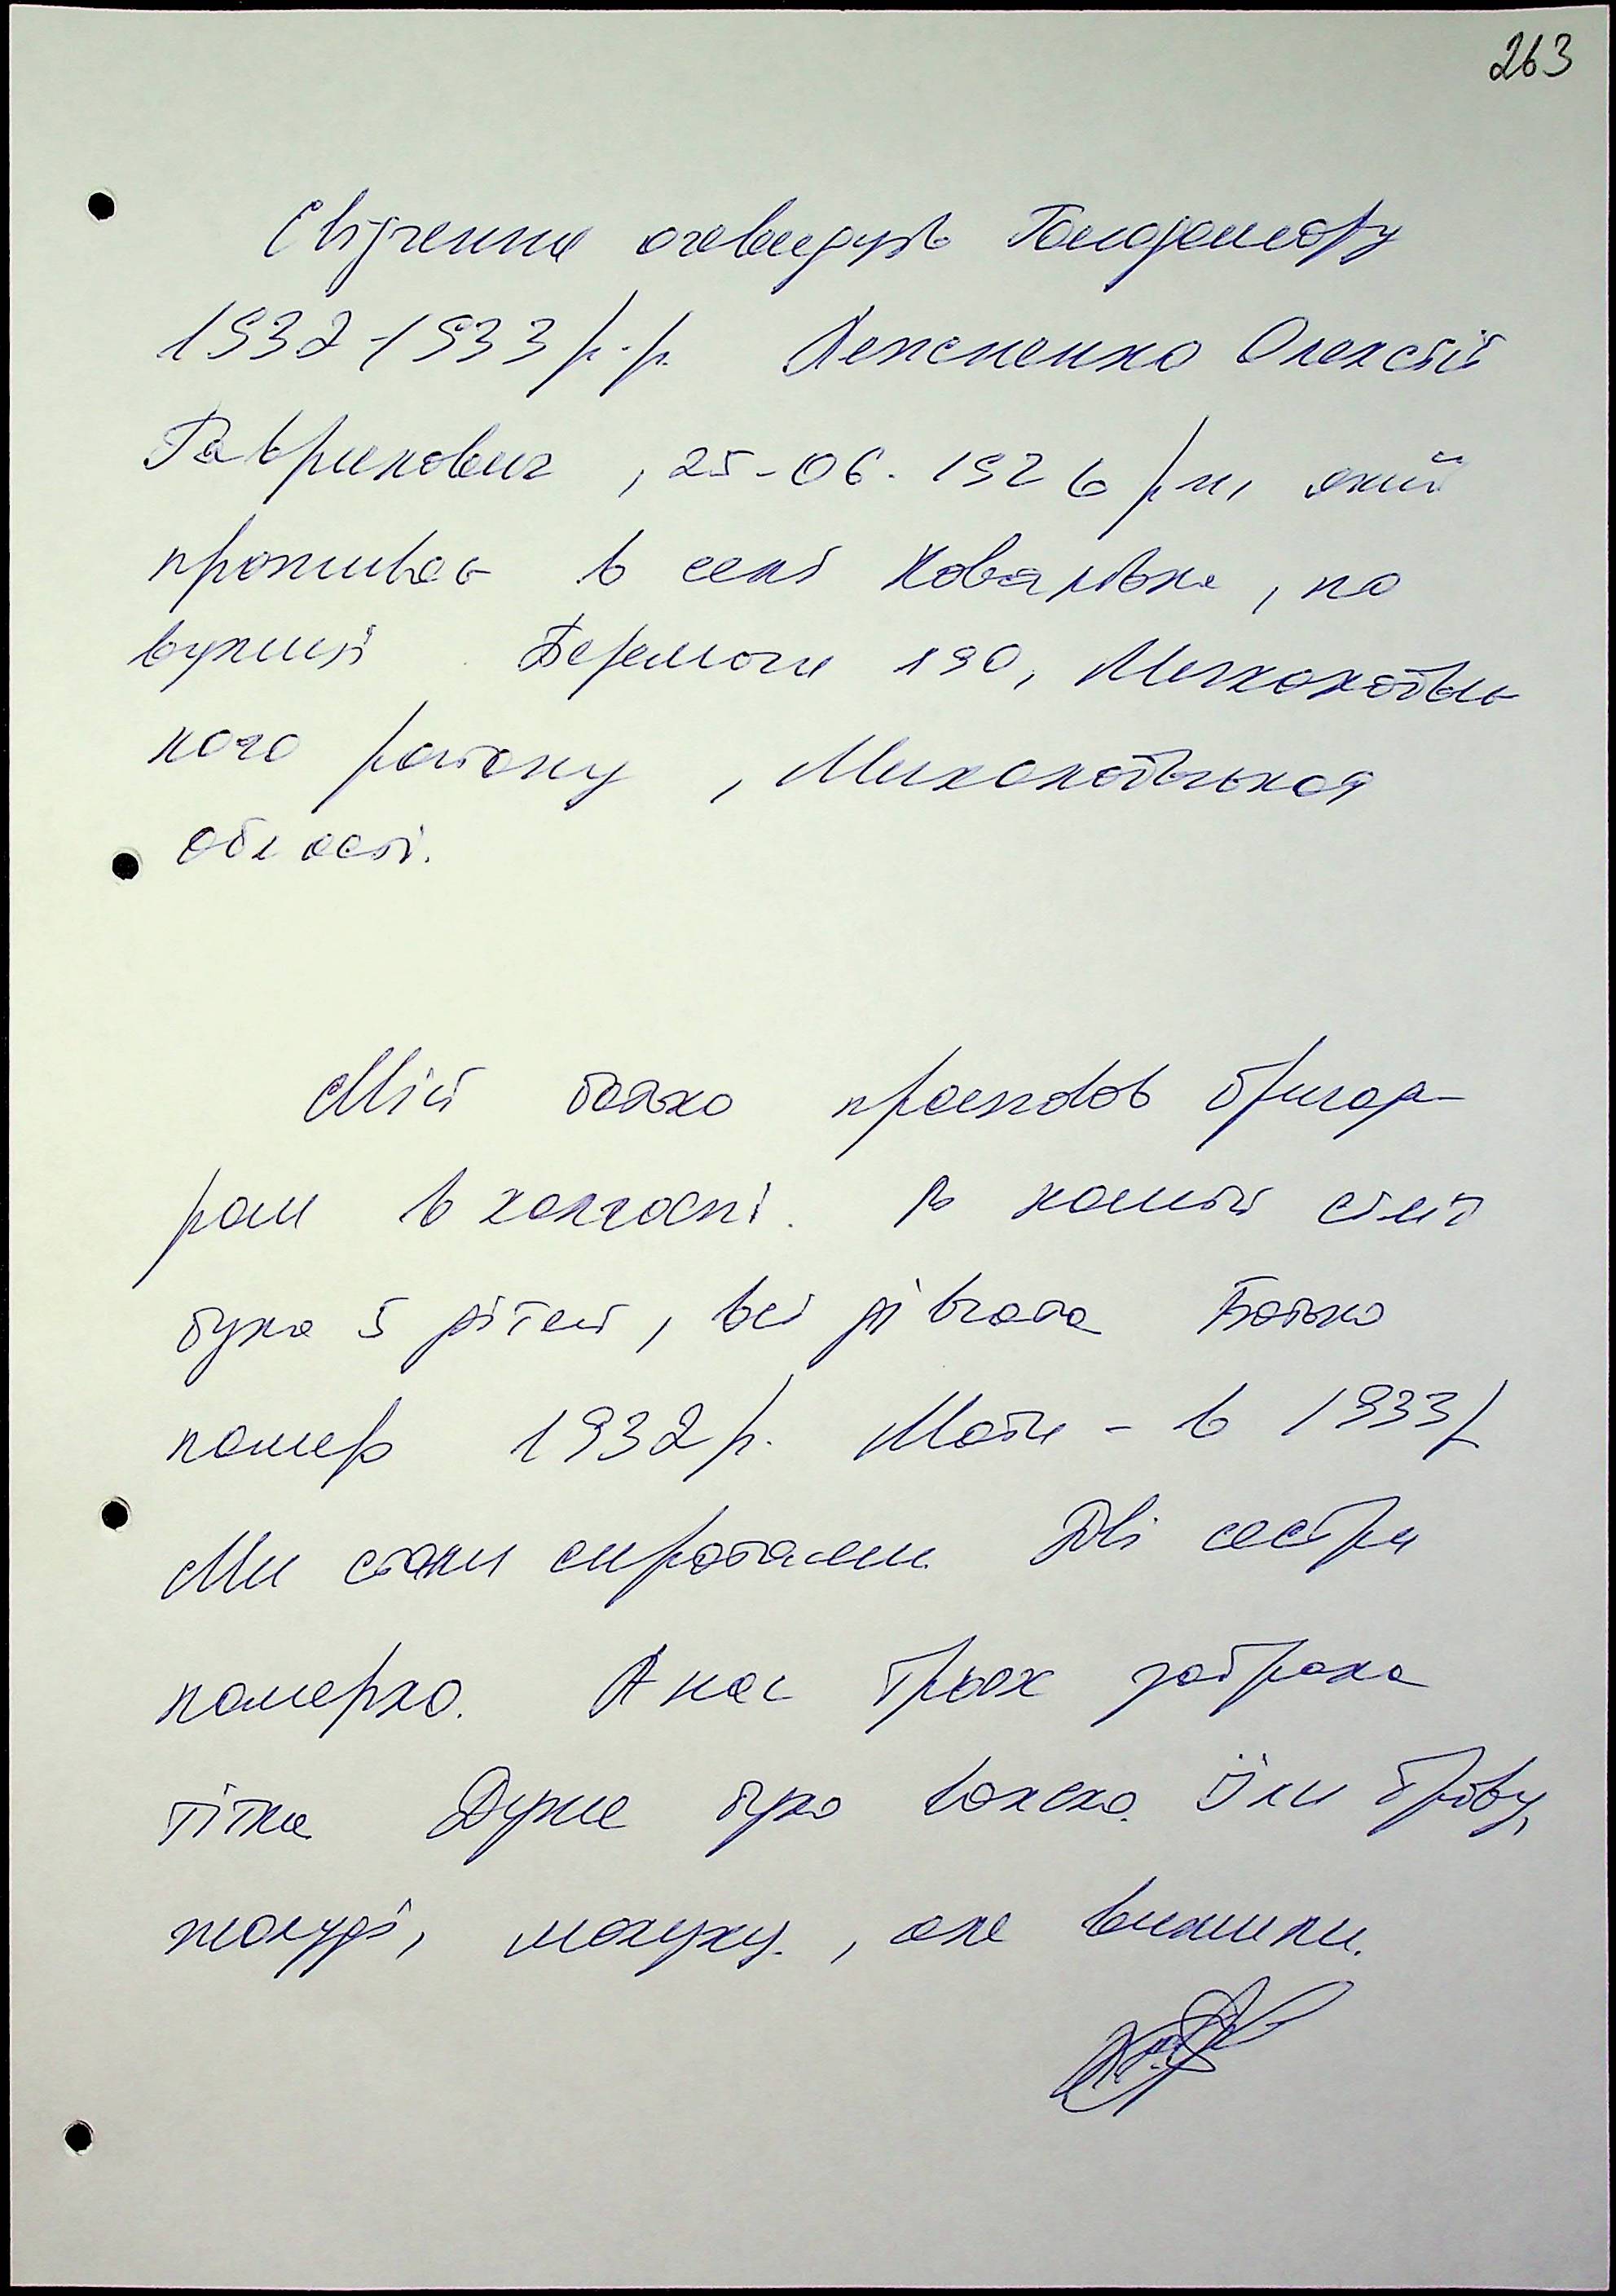 263
Свідчення очевидців Голодомору
1932-1933 р.р. Олексій
Гаврилович, 25-06. 1926 р.н, який
проживає в селі Ковалівка, по
вулиці Перемоги 190, Миколаївсь
кого району, Миколаївської
області.
Мій батько працював бригад-
ром в колгоспі. В нашій сімї
було 5 дітей, всі дівчата Батько
помер 1932 р. Мати - в 1933 р
Ми стали сиротами. Дві сестри
померло. А нас трьох забрала
тітка Дуже було важко. Їли траву,
жолуді, макуху., але вижили.